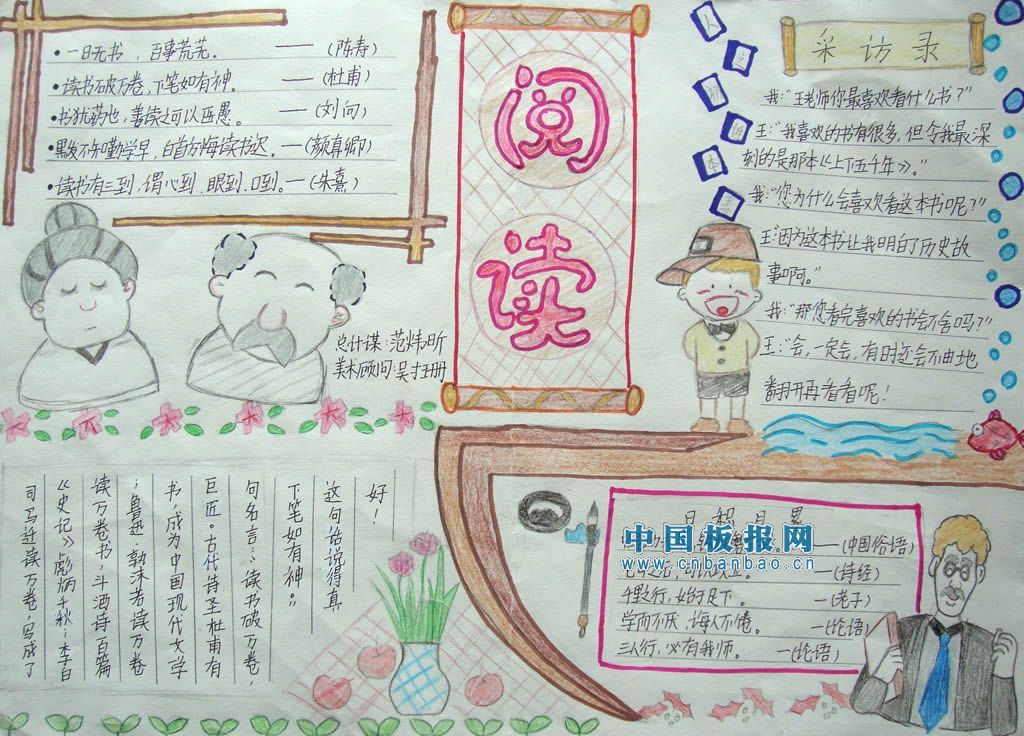 •一日无书，百事荒芜。——(陈寿)
•读书破万卷，下笔如有神。——(杜甫)
•书犹药也，善读之可以医愚。——(刘向)
•黑发不知勤学早，白首方悔读书迟。—(颜真卿)
•读书有三到，谓心到、眼到、口到。—(朱熹)
总计谋:范炜昕
美术顾问:吴
阅读
人之初性本善
采访录
我:“王老师你最喜欢看什么书?”
王:“我喜欢的书有很多,但令我最深
刻的是那本《上下五千年》。”
我:“您为什么会喜欢看这本书呢?”
王:“因为这本书让我明白了历史故
事啊。”
我:“那您看完喜欢的书会不舍吗?”
王:“会,一定会,有时还会不由地
翻开再看看呢!
司马迁读万卷，写成了
《史记》，彪炳千秋；李白
读万卷书，斗酒诗百篇
；鲁迅、郭沫若读万卷
书，成为中国现代文学
巨匠。古代诗圣杜甫有
句名言：“读书破万卷，
下笔如有神。”
这句话说得真
好！
日积月累
——(中国俗语)
—(诗经)
千里之行，始于足下。—(老子)
学而不厌，诲人不倦。—(论语)
三人行，必有我师。—(论语)
中国板报网
www.cnbanbao.cn